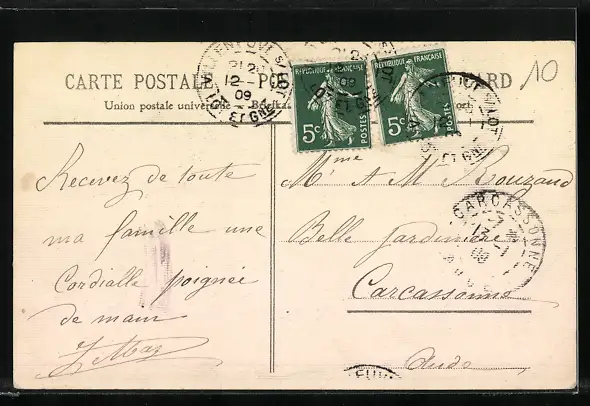 CARTE POSTALE
10
Union postale
VILLENEUVE S/LOT
12
09
LOT ET GNE
REPUBLIQUE FRANÇAISE
5c
POSTES
REPUBLIQUE FRANÇAISE
5c
POSTES
Mme
Mr A M Rouzaud
CARCASSONNE
Belle Jardinière
Carcassonne
Aude
Recevez de toute
ma famille une
Cordialle poignée
de main